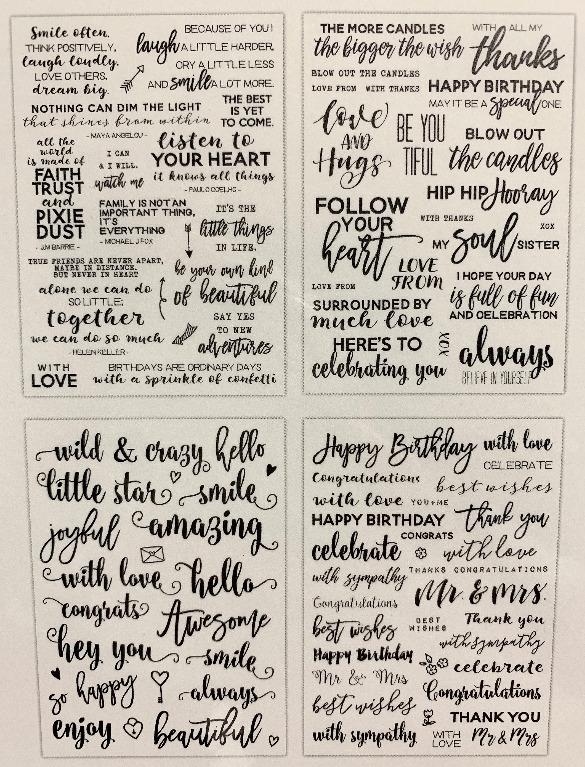 Smile often.
THINK POSITIVELY,
laugh loudly.
LOVE OTHERS.
dream big.
BECAUSE OF YOU I
laugh A LITTLE HARDER,
CRY A LITTLE LESS
AND smile A LOT MORE.
NOTHING CAN DIM THE LIGHT
that shines from within
- MAYA ANGELOU -
THE BEST
IS YET
TO COME.
all the
world
is made of
FAITH
TRUST
and
PIXIE
DUST
- J.M BARRIE -
I CAN
& I WILL.
watch me
listen to
YOUR HEART
it knows all things
- PAULO COELHO -
FAMILY IS NOT AN
IMPORTANT THING,
IT'S
EVERYTHING
- MICHAEL J FOX
IT'S THE
little things
IN LIFE.
TRUE FRIENDS ARE NEVER APART,
MAYBE IN DISTANCE,
BUT NEVER IN HEART
be your own kind
of beautiful
alone we can do
SO LITTLE;
together
we can do so much
- HELEN KELLER -
SAY YES
TO NEW
adventures
WITH
LOVE
BIRTHDAYS ARE ORDINARY DAYS
with a sprinkle of confetti
THE MORE CANDLES
the bigger the wish
WITH ALL MY
thanks
BLOW OUT THE CANDLES
LOVE FROM WITH THANKS
HAPPY BIRTHDAY
MAY IT BE A Special ONE
love
AND
Hugs
BE YOU
TIFUL
BLOW OUT
the candles
HIP HIP Hooray
FOLLOW
YOUR
heart
WITH THANKS
XOX
MY soul SISTER
LOVE
FROM
LOVE FROM
I HOPE YOUR DAY
is full of fun
AND CELEBRATION
SURROUNDED BY
much love
HERE'S TO
celebrating you
XOX
always
BELIEVE IN YOURSELF
wild & crazy hello
little star smile
joyful amazing
with love hello
congrats Awesome
hey you smile
so happy always
enjoy beautiful
Happy Birthday with love
CELEBRATE
Congratulations best wishes
with love YOU+ME
HAPPY BIRTHDAY thank you
CONGRATS
celebrate with love
with sympathy THANKS CONGRATULATIONS
Mr. & Mrs.
Congratulations
best wishes BEST
WISHES Thank you
with sympathy
Happy Birthday celebrate
Mr & Mrs Congratulations
best wishes THANK YOU
with sympathy WITH
LOVE Mr & Mrs